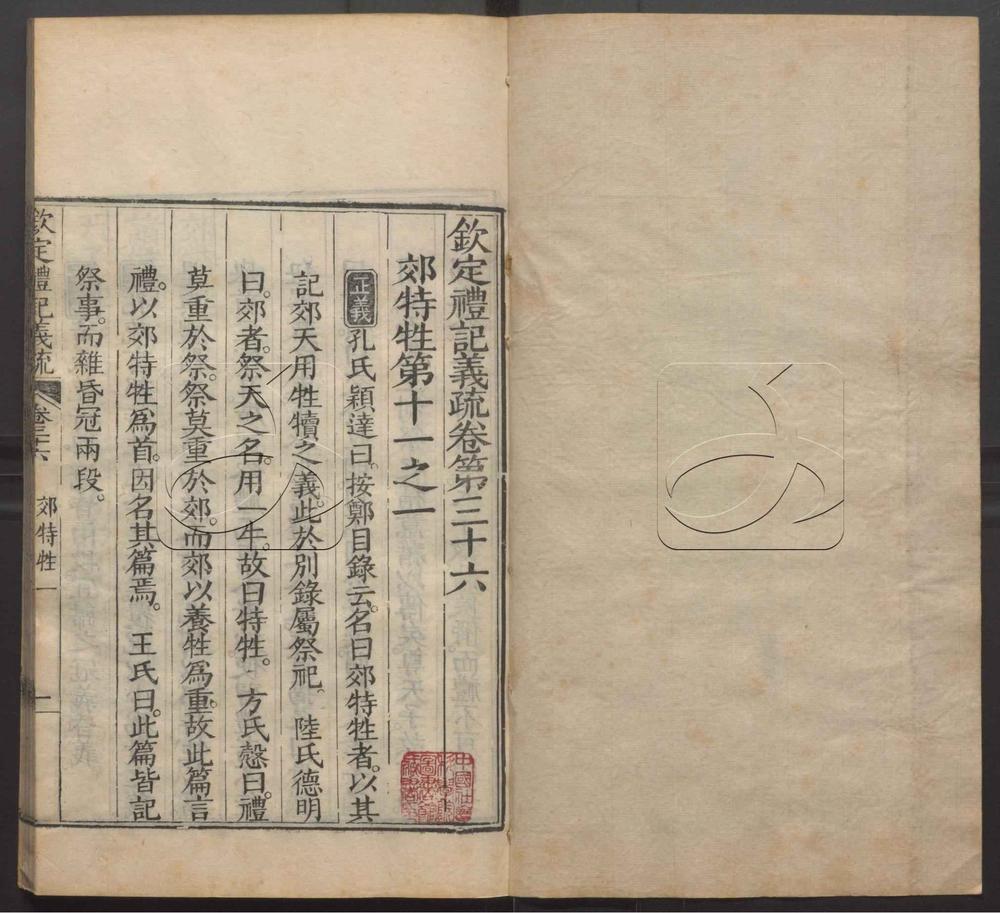 欽定禮記義疏卷第三十六
郊特牲第十一之一
正義孔氏穎達曰。按鄭目錄云。名曰郊特牲者。以其
記郊天用牲犢之義。此於別錄屬祭祀。 陸氏德明
曰。郊者。祭天之名。用一牛。故曰特牲。 方氏慤曰。禮
莫重於祭。祭莫重於郊。而郊以養牲爲重。故此篇言
禮。以郊特牲爲首。因名其篇焉。 王氏曰。此篇皆記
祭事。而雜昏冠兩段。
欽定禮記義疏 卷三十六 郊特牲一 一